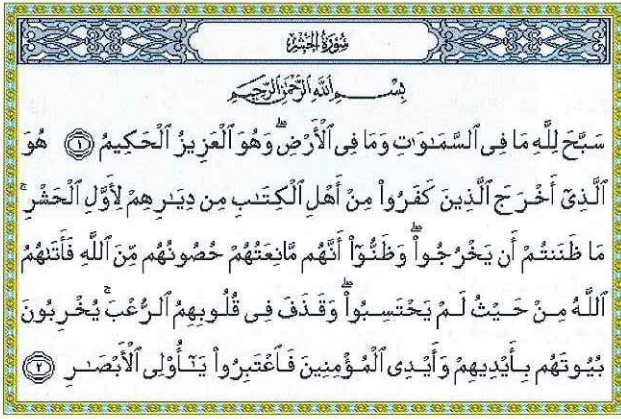 سُورَةُ الْحَشْرِ
بِسْمِ ٱللَّهِ ٱلرَّحْمَٰنِ ٱلرَّحِيمِ
سَبَّحَ لِلَّهِ مَا فِى ٱلسَّمَٰوَٰتِ وَمَا فِى ٱلْأَرْضِۖ وَهُوَ ٱلْعَزِيزُ ٱلْحَكِيمُ ١ هُوَ
ٱلَّذِىٓ أَخْرَجَ ٱلَّذِينَ كَفَرُوا۟ مِنْ أَهْلِ ٱلْكِتَٰبِ مِن دِيَٰرِهِمْ لِأَوَّلِ ٱلْحَشْرِۚ
مَا ظَنَنتُمْ أَن يَخْرُجُوا۟ۖ وَظَنُّوٓا۟ أَنَّهُم مَّانِعَتُهُمْ حُصُونُهُم مِّنَ ٱللَّهِ فَأَتَىٰهُمُ
ٱللَّهُ مِنْ حَيْثُ لَمْ يَحْتَسِبُوا۟ۖ وَقَذَفَ فِى قُلُوبِهِمُ ٱلرُّعْبَۚ يُخْرِبُونَ
بُيُوتَهُم بِأَيْدِيهِمْ وَأَيْدِى ٱلْمُؤْمِنِينَ فَٱعْتَبِرُوا۟ يَٰٓأُو۟لِى ٱلْأَبْصَٰرِ ٢